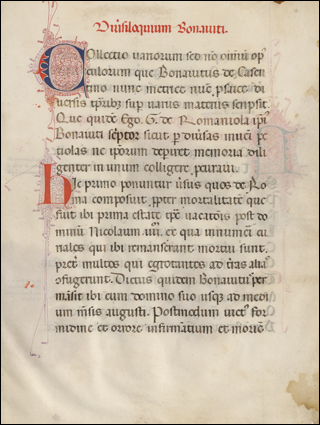 Diu̅siloquium Bonaiuti.
Collectio uariorum sed no̅ oi̅um op
culorum que Bonaiutus de Casen
tino nunc metrice nu̅c p̱saice di
uersis tp̅ribꝫ sup uariis materiis scripsit.
Que quide̅ Ego. G. de Romaniola ip̅i
Bonaiuti sc̅ptor sicut p̱ diu̅sas
ciolas ne ip̅orum depiret memoria dili
genter in unum colligere curaui.
Hic primo ponuntur u̅sus quos de Ro
ma composuit, p̱pter mortalitate̅ que
fuit ibi prima estate tp̅e uacac̅ois post do
minu̅ Nicolaum .iiij. ex qua
nales qui ibi remanserant mortui sunt.
preter multos qui egrotantes ad t̅ras alia
offugerunt. Dictus quidem Bonaiutus per
ma̅sit ibi cum domino suo usqꝫ ad medi
um me̅sis augusti. Postmodum uict for
midine et orrore infirmantium et morie̅